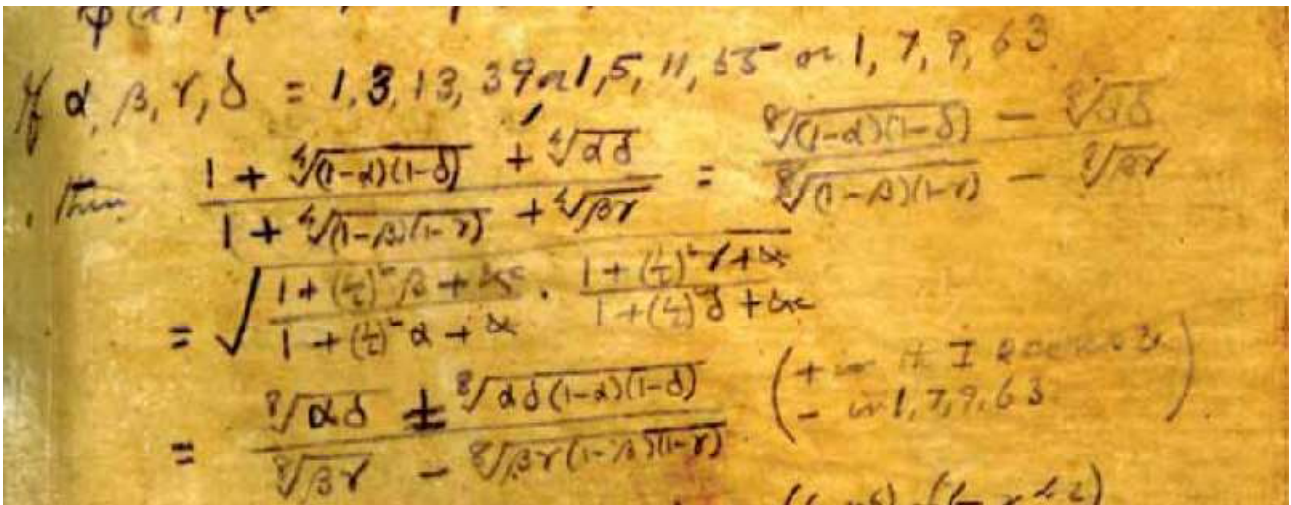 If α, β, γ, δ = 1, 3, 13, 39 or 1, 5, 11, 55 or 1, 7, 9, 63
then (1 + ∜((1-α)(1-δ)) + ∜(αδ)) / (1 + ∜((1-β)(1-γ)) + ∜(βγ)) = (⁸√((1-α)(1-δ)) - ⁸√(αδ)) / (⁸√((1-β)(1-γ)) - ⁸√(βγ))
= √( (1 + (½)² β + &c) / (1 + (½)² α + &c) · (1 + (½)² γ + &c) / (1 + (½)² δ + &c) )
= (⁸√(αδ) ± ⁸√(αδ(1-α)(1-δ))) / (⁸√(βγ) - ⁸√(βγ(1-β)(1-γ))) ( + in
- in 1, 7, 9, 63 ).